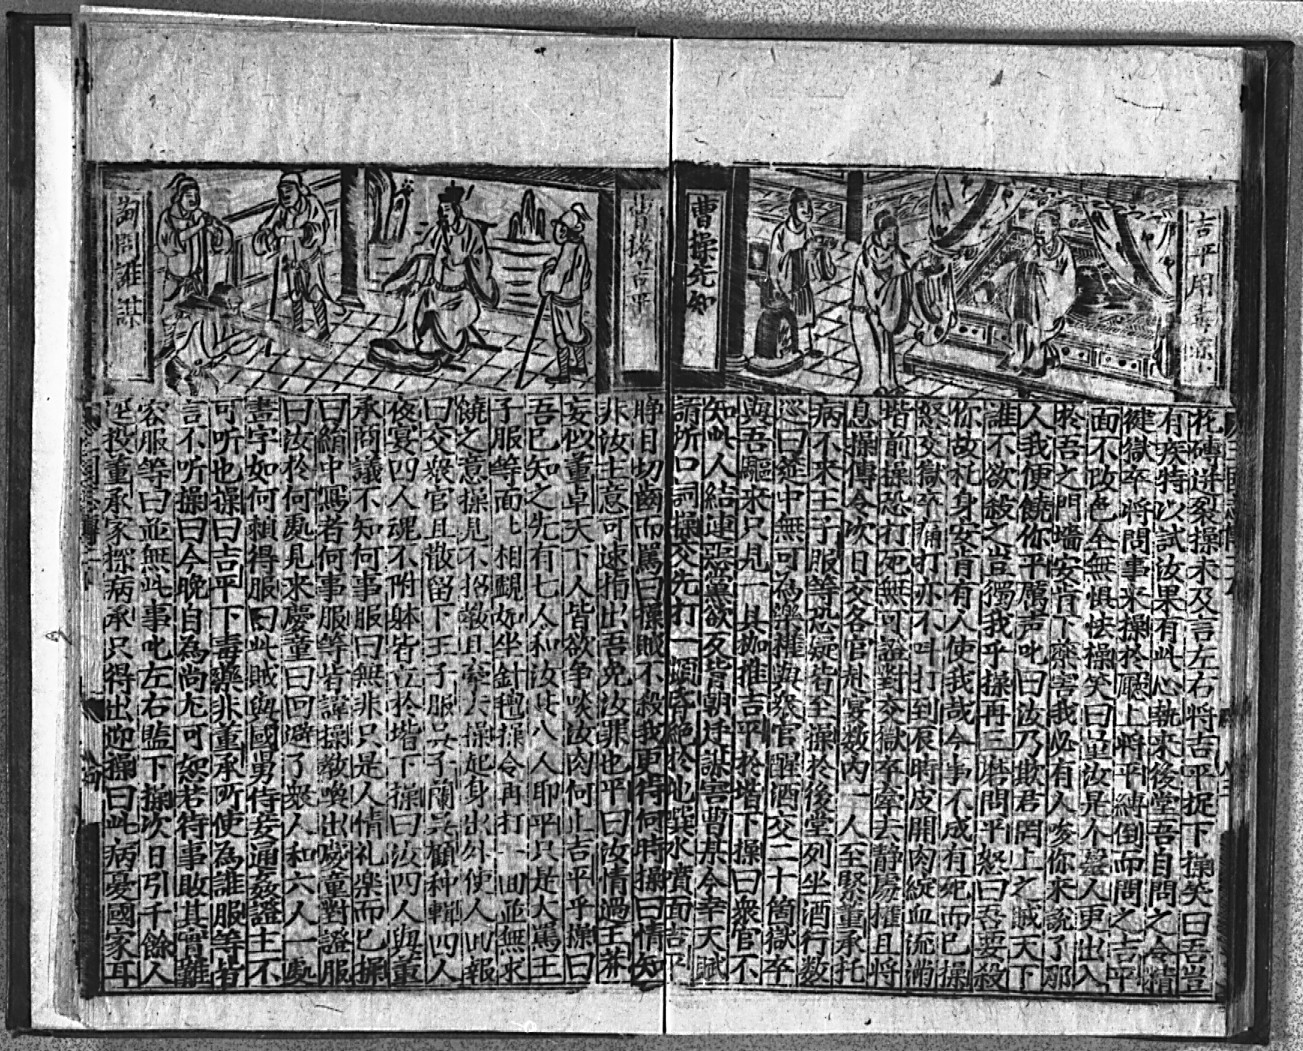 吉平用毒藥
曹操先知
花磚迸裂操未及言左右将吉平捉下操笑曰吾豈
有疾特以試汝果有此心執來後堂吾自問之令精
健獄卒将問事來操於廳上將平縛倒而問之吉平
面不改色全無惧怯操笑曰量汝是个醫人更出入
於吾之門墻安肯下藥害我必有人唆你來說了那
人我便饒你平厲声叱曰汝乃欺君罔上之賊天下
誰不欲殺之豈獨我乎操再三磨問平怒曰吾要殺
你故扎身安肯有人使我哉今事不成有死而已操
怒交獄卒痛打亦不叫打到辰時皮開肉綻血流滿
堦前操恐打死無可證對交獄卒牽去靜處權且將
息操傳令次日交各官赴宴数内一人至緊董承托
病不來王子服等恐疑皆至操於後堂列坐酒行数
巡曰筵中無可為樂權與衆官醒酒交二十箇獄卒
與吾驅來只見一具枷推吉平於堦下操曰衆官不
知此人結連惡黨欲反背朝廷謀害曹某今幸天賦
請听口詞操交先打一頓昏絶於地噀水噴面吉平
曹操拷吉平
詢問誰謀
睜目切齒而罵曰操賊不殺我更待何時操曰情知
非汝主意可速指出吾免汝罪也平曰汝情過王莽
妄似董卓天下人皆欲争啖汝肉何止吉平乎操曰
吾已知之先有七人和汝共八人耶平只是大罵王
子服等面上相覷如坐針氊操令再打一面並無求
饒之意操見不招認且牽去操起身出外使人回報
曰交衆官且散留下王子服吳子蘭吳碩种輯四人
夜宴四人魂不附躰皆立於堦下操曰汝四人與董
承商議不知何事服曰無非只是人情礼樂而已操
曰絹中寫者何事服等皆諱操敎喚出慶童對證服
曰汝於何處見來慶童曰回避了衆人和六人一處
畫字如何賴得服曰此賊與國舅侍妾通姦證主不
可听也操曰吉平下毒藥非董承所使為誰服等皆
言不听操曰今晚自為尚尤可恕若待事敗其實難
容服等曰並無此事叱左右監下操次日引千餘人
投董承家探病承只得出迎操曰此病憂國家耳